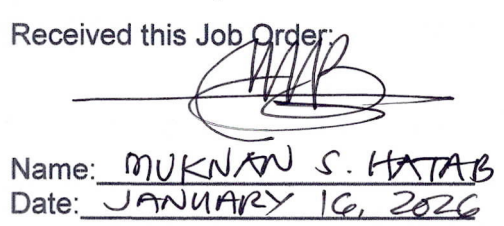 Received this Job Order:
Name: MUKNAN S. HATAB
Date: JANUARY 16, 2026